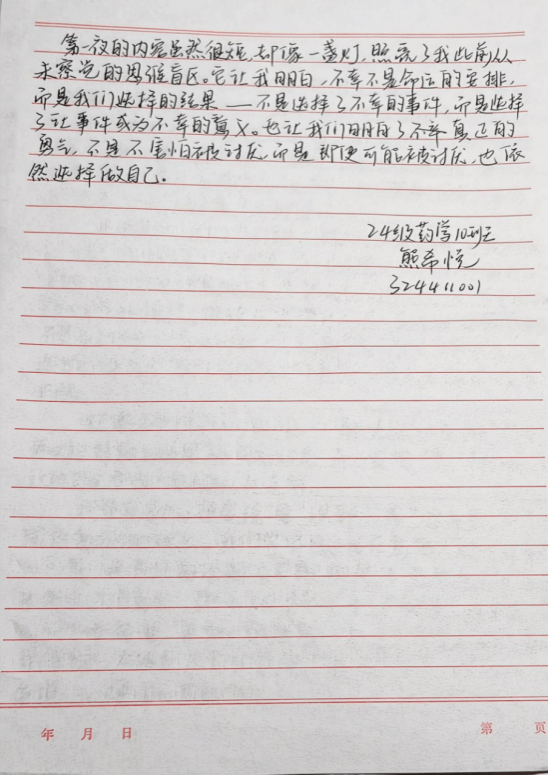 第一夜的内容虽然很短,却像一盏灯,照亮了我此前从
未察觉的思维盲区。它让我明白,不幸不是命运的安排,
而是我们选择的结果——不是选择了不幸的事件,而是选择
了让事件成为不幸的意义。也让我们明白了不幸真正的
勇气,不是不害怕被讨厌,而是即便可能被讨厌,也依
然选择做自己.
24级药学10班
熊希悦
324411001
年 月 日
第 页